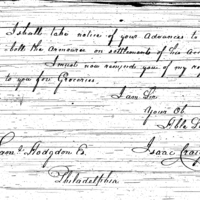 I shall take notice of your advances to
both the Armourer on settlements of his acc
I must now remind you of my
to you for Groceries.
I am Sir
Your Ob
Hble Se
Saml. Hodgdon
Isaac Craig
Philadelphia